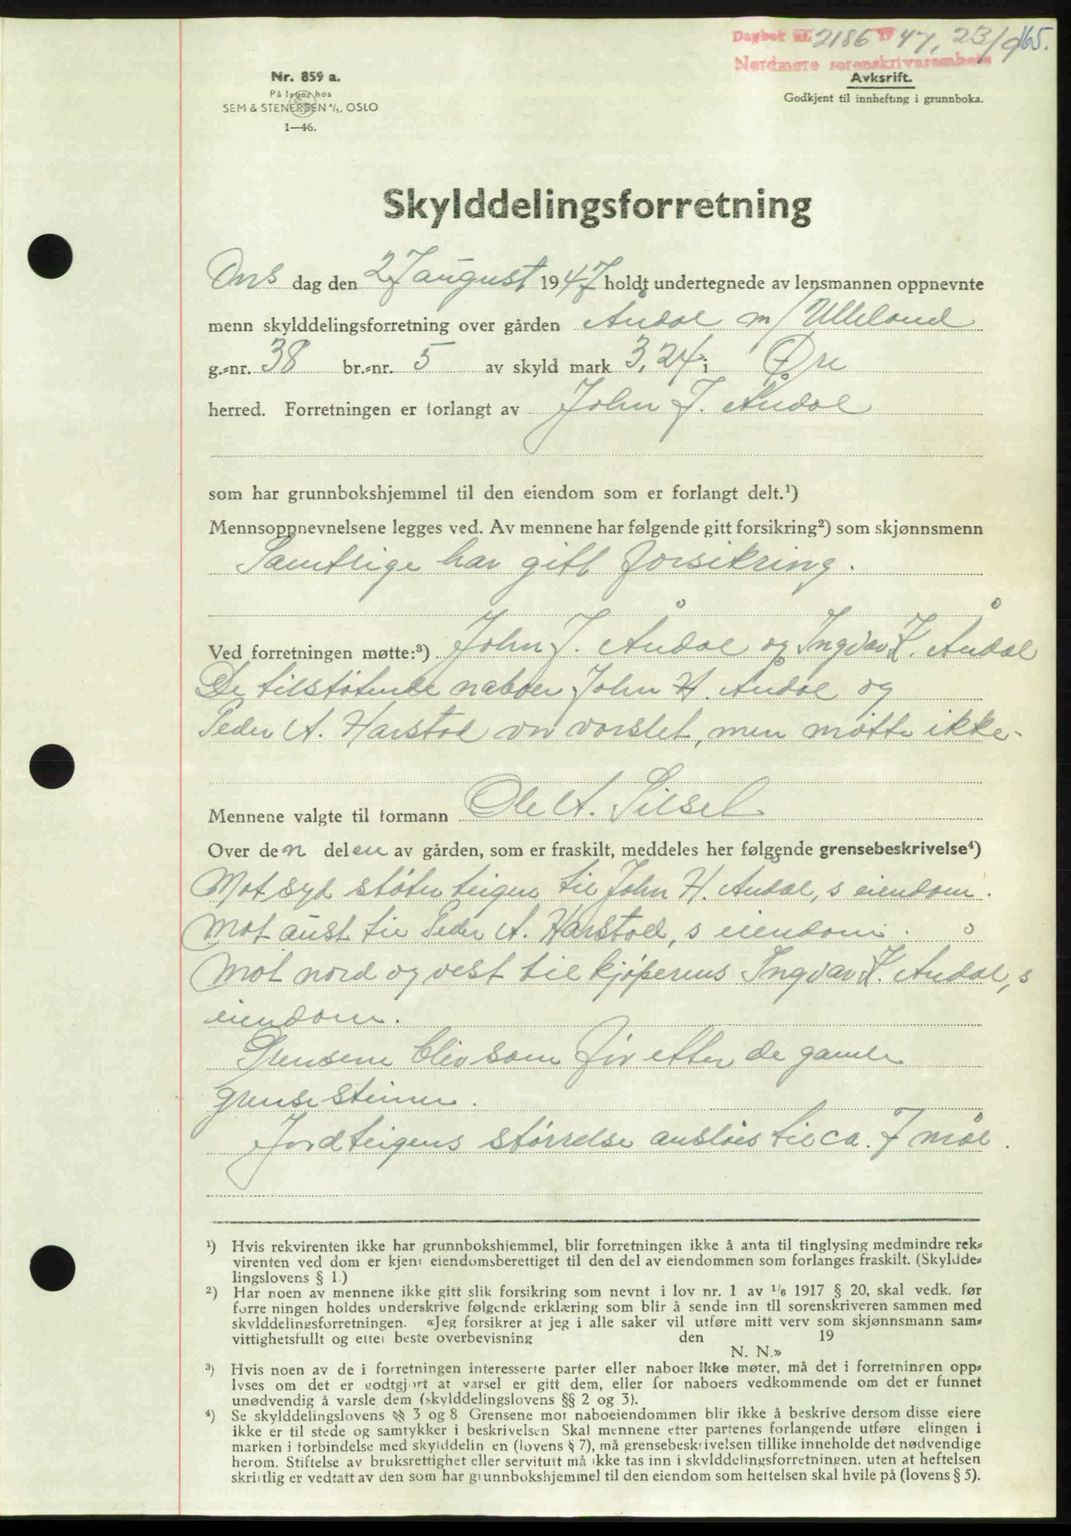 Dagbok nr. 2186 1947, 23/9 165.
Nordmøre sorenskriverembete
Nr. 859 a.
På lager hos
SEM & STENERSEN A/S, OSLO
1—46.
Avksrift.
Godkjent til innhefting i grunnboka.
Skylddelingsforretning
Ons dag den 27 august 1947 holdt undertegnede av lensmannen oppnevnte
menn skylddelingsforretning over gården Åndal m/ Ulleland
g.-nr. 38 br.-nr. 5 av skyld mark 3,24 i Øre
herred. Forretningen er forlangt av John J. Åndal
som har grunnbokshjemmel til den eiendom som er forlangt delt.¹)
Mennsoppnevnelsene legges ved. Av mennene har følgende gitt forsikring²) som skjønnsmenn
Samtlige har gitt forsikring.
Ved forretningen møtte:³) John J. Åndal og Ingvar K. Åndal
De tilstøtende naboer John H. Åndal og
Peder A. Harstad var varslet, men møtte ikke.
Mennene valgte til formann Ole A. Silset
Over den delen av gården, som er fraskilt, meddeles her følgende grensebeskrivelse⁴)
Mot syd støter teigen til John H. Åndal,s eiendom.
Mot aust til Peder A. Harstad,s eiendom.
Mot nord og vest til kjøperens Ingvar K. Åndal,s
eiendom.
Grensene blir som før etter de gamle
grensesteiner.
Jordteigens størrelse anslåes til ca. 7 mål.
¹) Hvis rekvirenten ikke har grunnbokshjemmel, blir forretningen ikke å anta til tinglysing medmindre rek-
virenten ved dom er kjent eiendomsberettiget til den del av eiendommen som forlanges fraskilt. (Skyldde-
lingslovens § 1.)
²) Har noen av mennene ikke gitt slik forsikring som nevnt i lov nr. 1 av 1/6 1917 § 20, skal vedk. før
forre ningen holdes underskrive følgende erklæring som blir å sende inn til sorenskriveren sammen med
skylddelingsforretningen. «Jeg forsikrer at jeg i alle saker vil utføre mitt verv som skjønnsmann sam-
vittighetsfullt og etter beste overbevisning den 19
N. N.»
³) Hvis noen av de i forretningen interesserte parter eller naboer ikke møter, må det i forretningen opp-
lyses om det er godtgjort at varsel er gitt dem, eller for naboers vedkommende om det er funnet
unødvendig å varsle dem (skylddelingslovens §§ 2 og 3).
⁴) Se skylddelingslovens §§ 3 og 8 Grensene mot naboeiendommen blir ikke å beskrive dersom disse eiere
ikke er til stede og samtykker i beskrivelsen Skal mennene etter partenes forlangende utføre elingen i
marken i forbindelse med skylddelin en (lovens § 7), må grensebeskrivelsen tillike inneholde det nødvendige
herom. Stiftelse av bruksrettighet eller servitutt må ikke tas inn i skylddelingsforretningen, uten at heftelsen
skriftlig er vedtatt av den som har grunnbokshjemmel til den eiendom som heftelsen skal hvile på (lovens § 5).